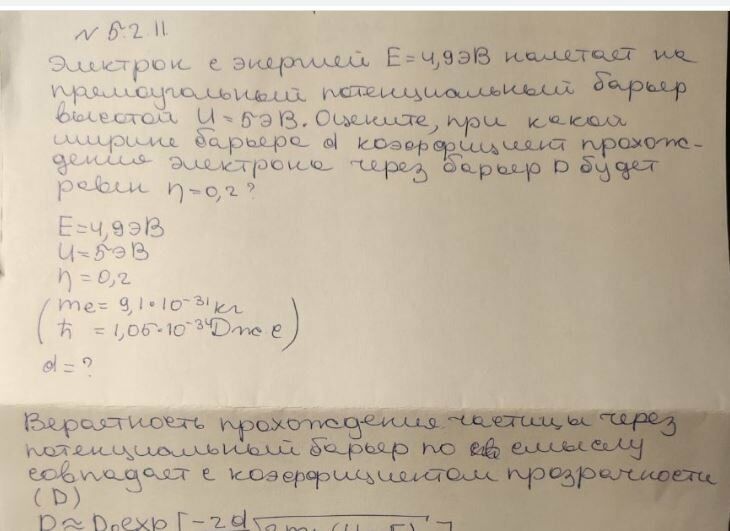 № 5.2.11
Электрон с энергией E=4,9эВ налетает на
прямоугольный потенциальный барьер
высотой U=5эВ. Оцените, при какой
ширине барьера d коэффициент прохож-
дения электрона через барьер D будет
равен η=0,2?
E=4,9эВ
U=5эВ
η=0,2
(me= 9,1•10⁻³¹кг
ħ = 1,05•10⁻³⁴Дж с)
d=?
Вероятность прохождения частицы через
потенциальный барьер по смыслу
совпадает с коэффициентом прозрачности
(D)
D≈D₀exp[-2d